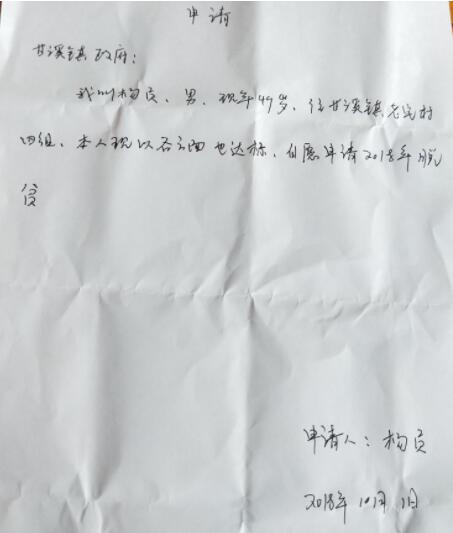 申请
甘溪镇政府：
我叫杨员，男，现年49岁，住甘溪镇老屯村
四组，本人现以各方面也达标，自愿申请2018年脱
贫
申请人：杨员
2018年10月1日